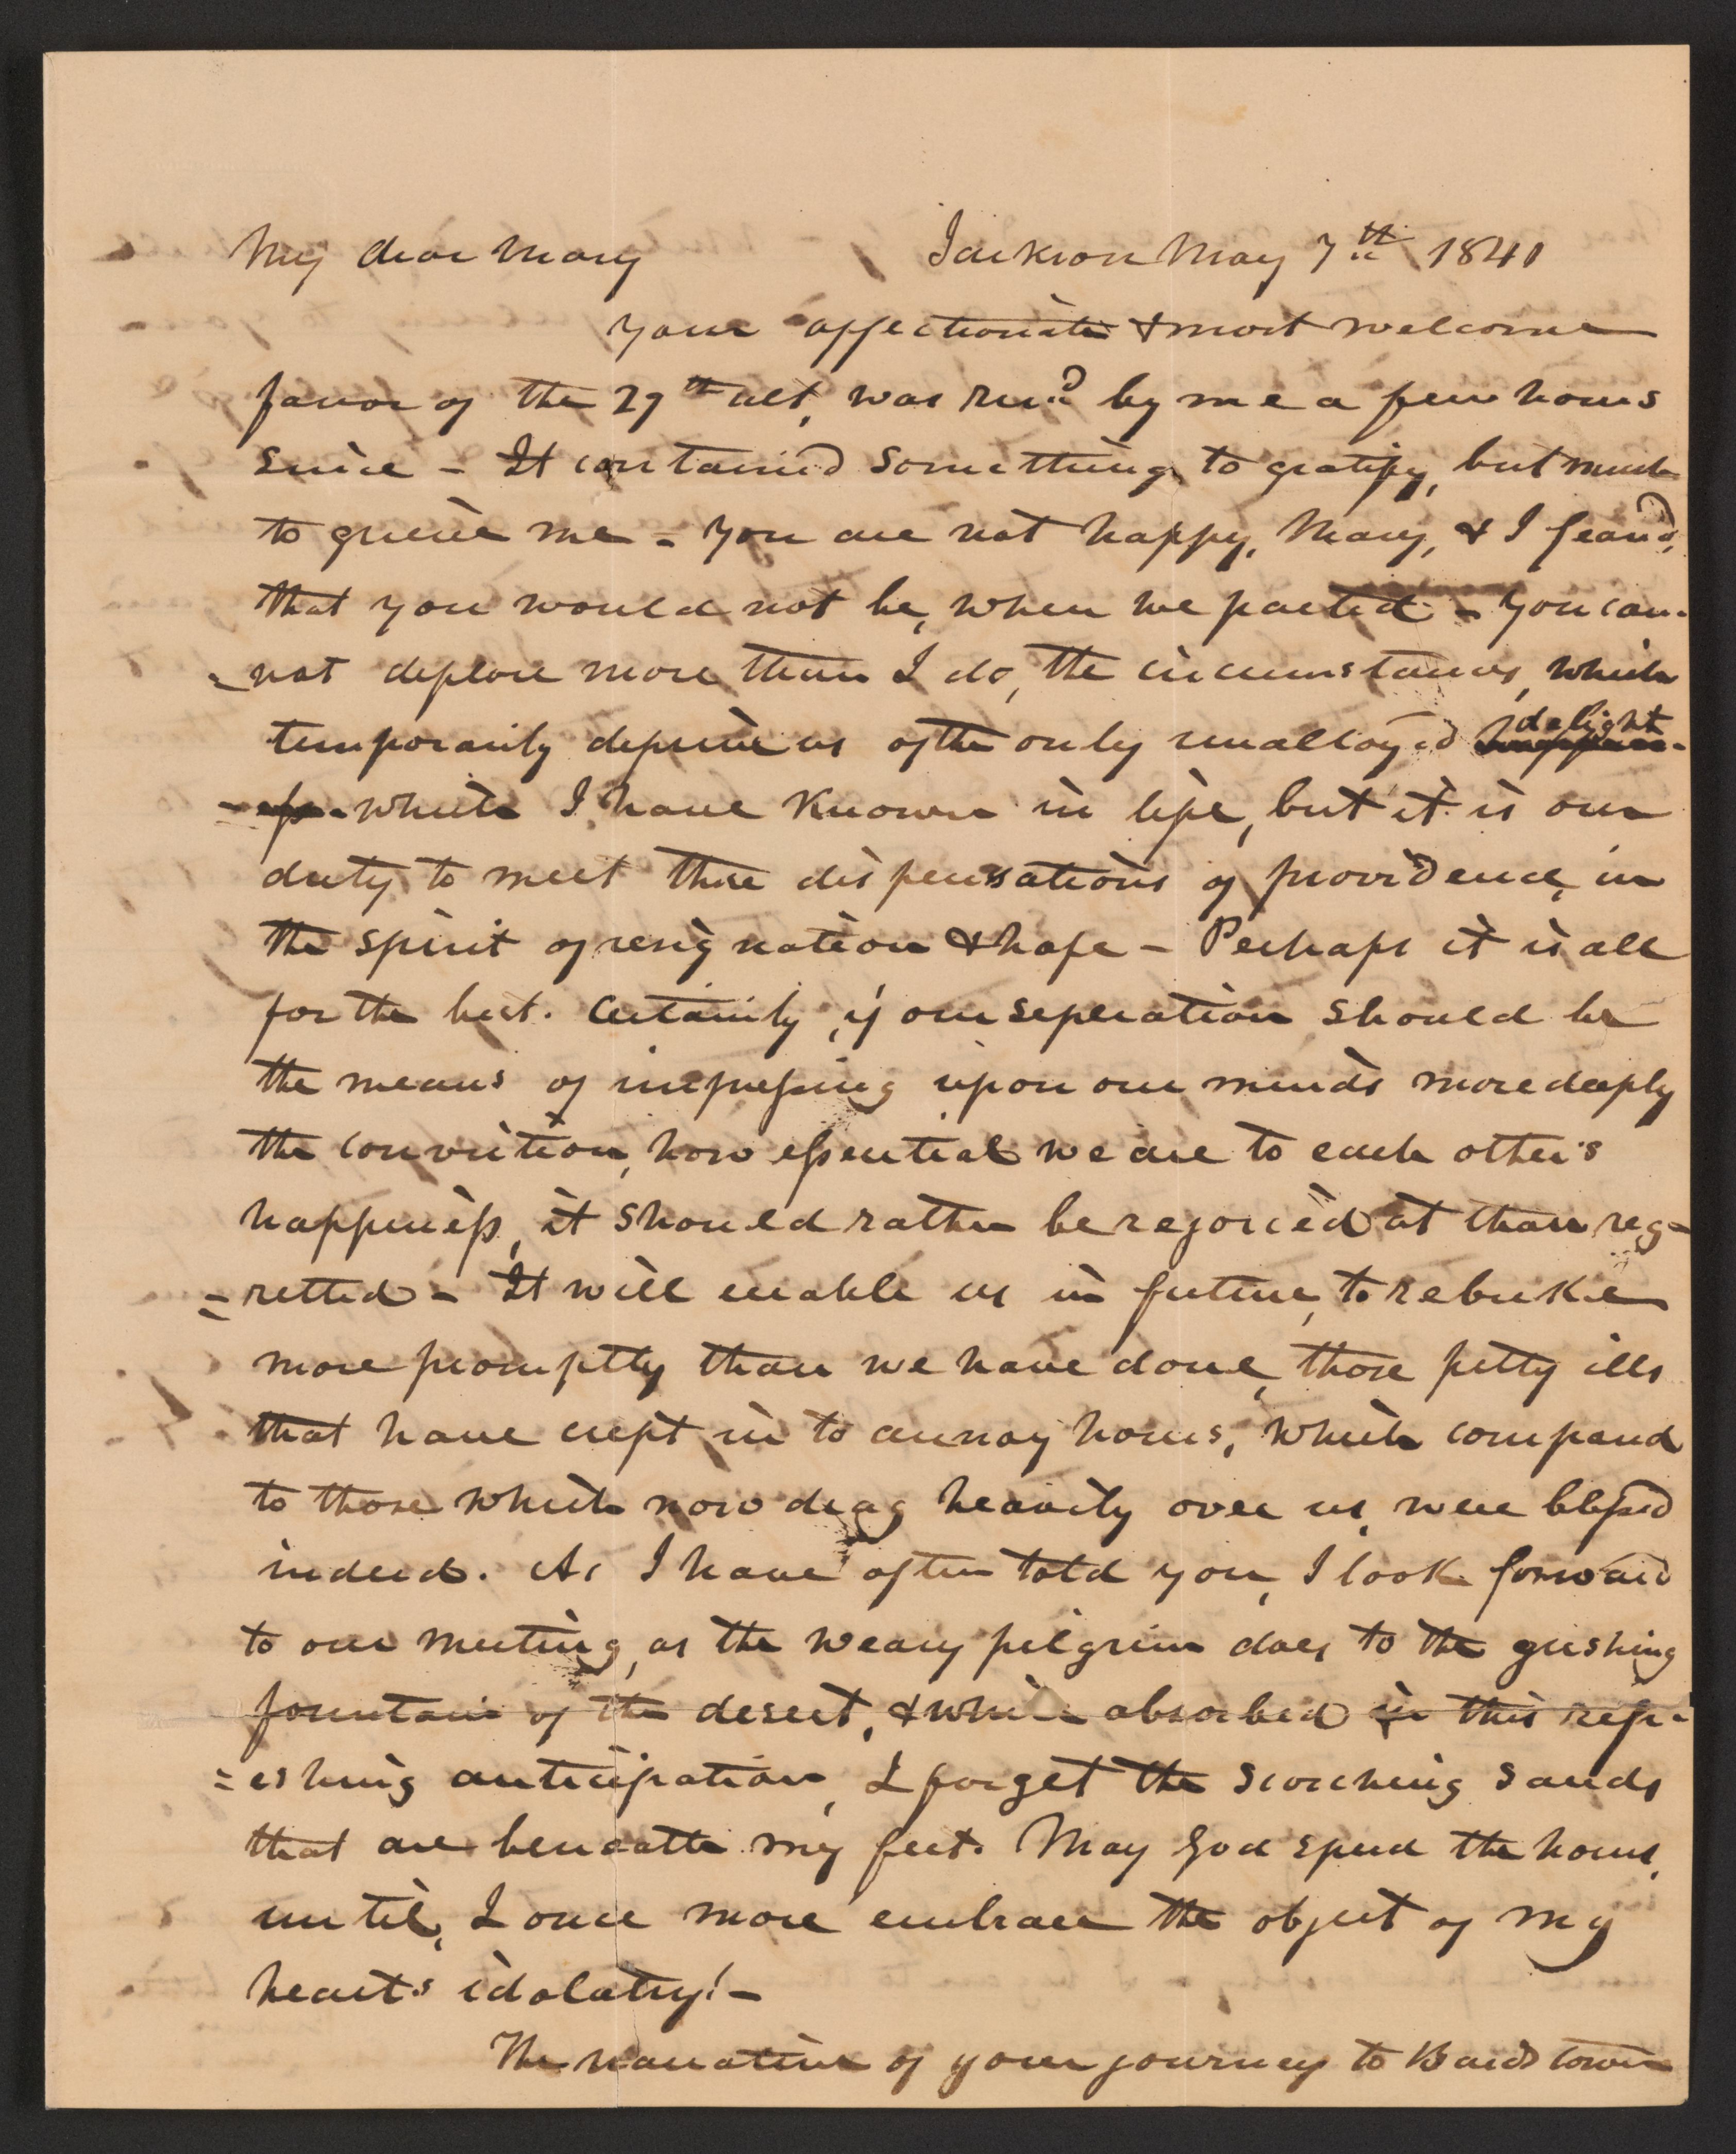 My dear Mary Jackson May 7th 1841
Your affectionate & most welcome
favor of the 29th ult, was recd by me a few hours
since - It contained something to gratify, but much
to grieve me - You are not happy, Mary, & I feard,
that you would not be, when we parted - You can-
-not deplore more than I do, the circumstances, which
temporarily deprive us of the only unalloyed happin- delight
-ess which I have known in life, but it is our
duty to meet these dispensations of providence, in
the spirit of resignation & hope - Perhaps it is all
for the best. Certainly, if our seperation should be
the means of impressing upon our minds more deeply
the conviction, how essential we are to each other's
happiness, it should rather be rejoiced at than reg-
=retted - It will enable us in future, to rebuke
more promptly than we have done, those petty ills
that have crept in to annoy hours, which compared
to those which now drag heavily over us, were blessed
indeed. As I have often told you, I look forward
to our meeting, as the weary pilgrim does to the gushing
fountain of the desert, & while absorbed in this refr-
=eshing anticipation, I forget the scorching sands
that are beneath my feet. May God speed the hours,
until, I once more embrace the object of my
heart's idolatry! -
The narrative of your journey to Bardstown